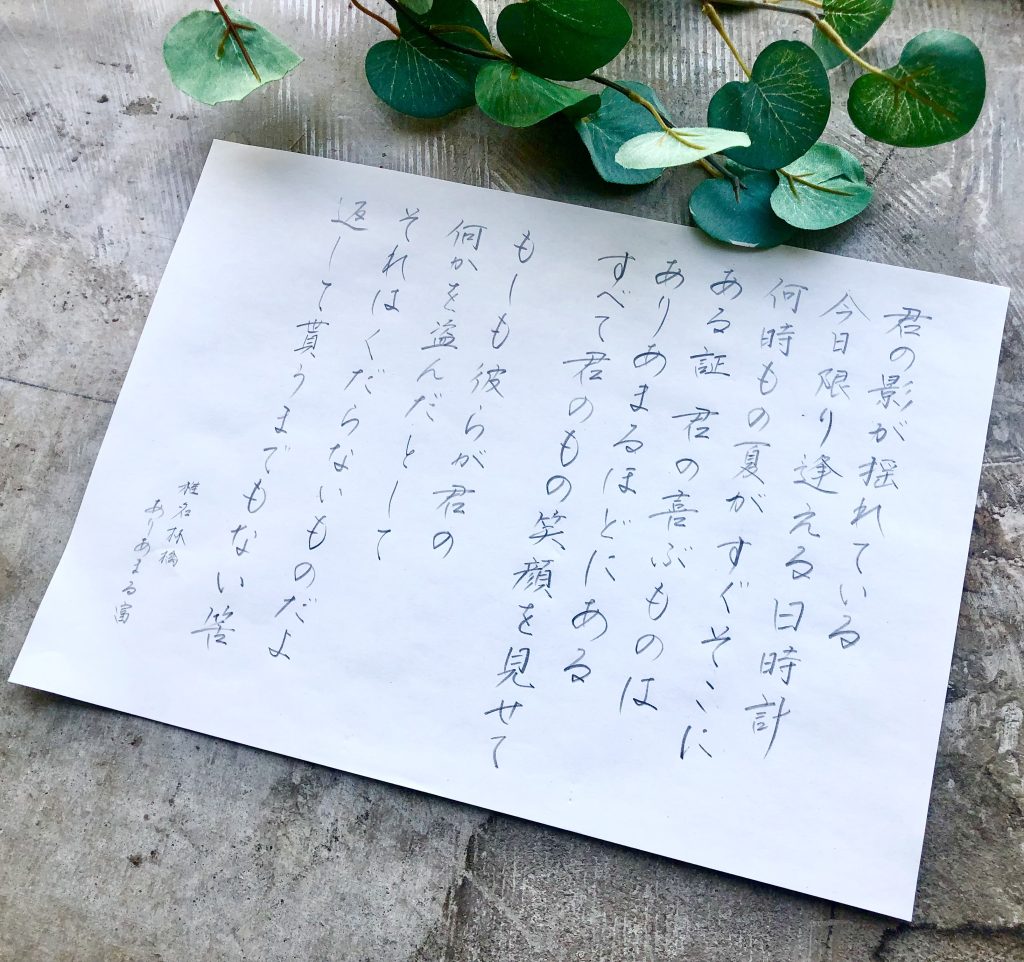 君の影が揺れている
今日限り逢える日時計
何時もの夏がすぐそこに
ある証 君の喜ぶものは
ありあまるほどにある
すべて君のもの笑顔を見せて
もしも彼らが君の
何かを盗んだとして
それはくだらないものだよ
返して貰うまでもない筈
椎名林檎
ありあまる富